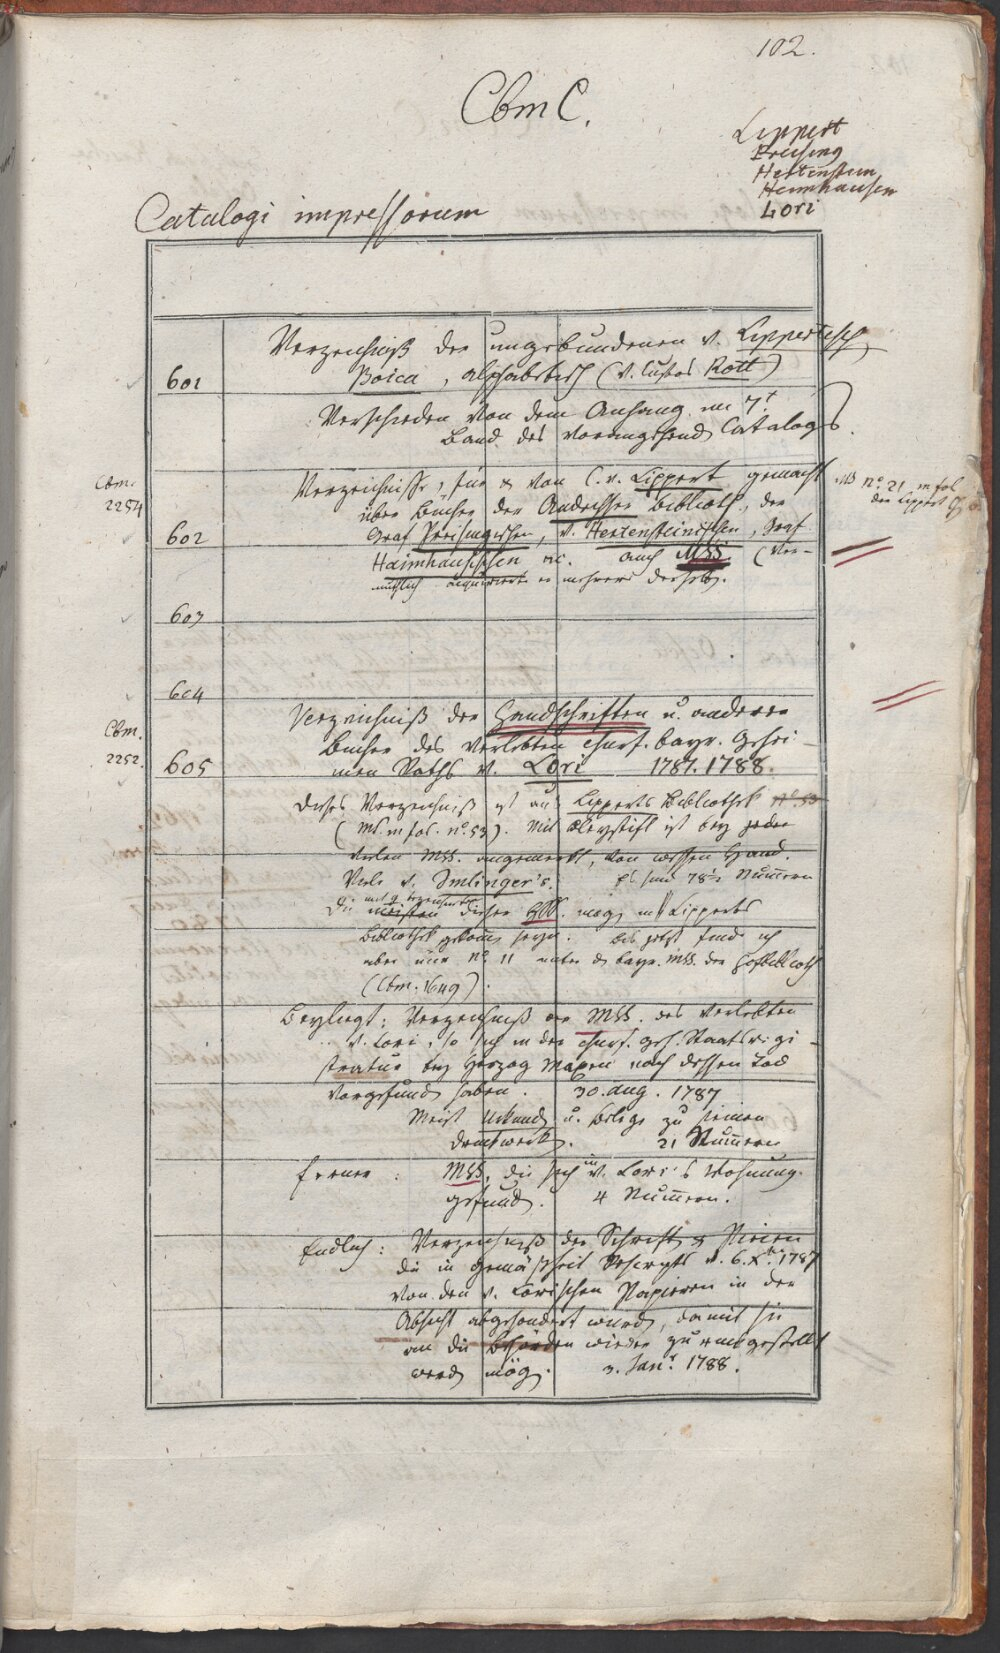 102.
Cbm C.
Lippert
Preising
Hertenstein
Heimhausen
Lori
Catalogi impressorum
601
Verzeichniß der ungebundenen v. Lippertisch
Boica, alphabetisch (v. Custos Rott)
Verschieden von dem Anhang im 7t
Band des vorangehend Catalogs.
Cbm.
2254
602
Verzeichnisse, für & von C. v. Lippert gemacht
über Bücher der Andechser Biblioth., der
Graf Preisingischen, v. Hertensteinischen, Graf
Haimhausischen etc. auch MSS. (Ver-
muthlich acquirierte er mehrere derselb.
MS no. 21 in fol
der Lippert
603
604
Cbm.
2252.
605
Verzeichniß der Handschriften u. anderer
Bücher des verlebten churf. bayr. Gehei-
men Raths v. Lori 1787. 1788.
Dieses Verzeichniß ist aus Lipperts Bibliothek No. 53
(Ms. in fol. no. 53). Mit Bleystift ist bey jeder
vielen MSS. angemerkt, von wessen Hand.
Viele v. Imlinger's. Es sind 78 1/2 Nummern
Die meisten dieser HSS. mög. in Lipperts
Bibliothek gekomm. seyn. Bis jetzt finde ich
aber nur no. 11 unter d. bayr. MSS. der Hofbiblioth
(Cbm. 1649).
Beyliegt: Verzeichniß der MSS. des verlebten
v. Lori, so sich in der churf. geh. Staatsregi-
stratur bey Herzog Maxen nach dessen Tod
vorgefund. haben. 30. Aug. 1787
Meist Urkund. u. Belege zu seinem
Druckwerk. 21 Nummern
Ferner: MSS, die sich in v. Lori's Wohnung
gefund. 4 Nummern.
Endlich: Verzeichniß der Schrift. & Piecen
die in Gemäßheit Rescripts v. 6. Xbr. 1787
von den v. Lorischen Papieren in der
Absicht abgesondert wurd., damit sie
an die Behörden wieder zurückgestellt
werd. mög. 3. Jan. 1788.